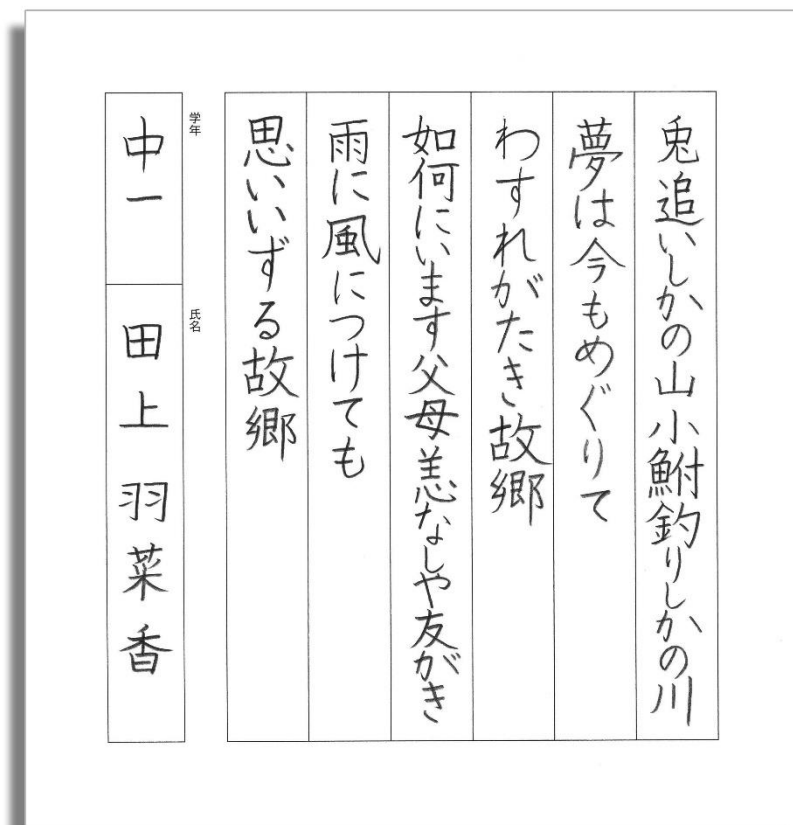 兎追いしかの山小鮒釣りしかの川
夢は今もめぐりて
わすれがたき故郷
如何にいます父母恙なしや友がき
雨に風につけても
思いいずる故郷
学年
中一
氏名
田上 羽菜香